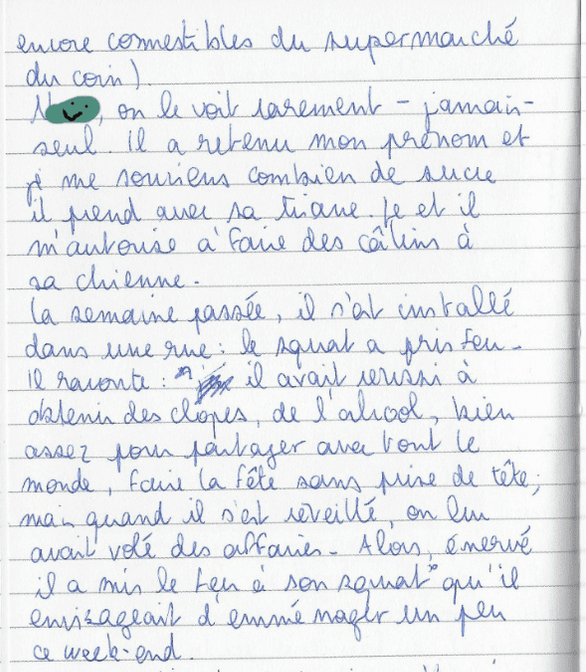 encore comestibles du supermarché
du coin).
N , on le voit rarement - jamais
seul. Il a retenu mon prénom et
je me souviens combien de sucre
il prend avec sa tisane. Je et il
m'autorise à faire des câlins à
sa chienne.
La semaine passée, il s'est installé
dans une rue : le squat a pris feu.
Il raconte : " il avait réussi à
obtenir des clopes, de l'alcool, bien
assez pour partager avec tout le
monde, faire la fête sans prise de tête ;
mais quand il s'est réveillé, on lui
avait volé des affaires. Alors, énervé
il a mis le feu à son squat" qu'il
envisageait d'emménager un peu
ce week-end.